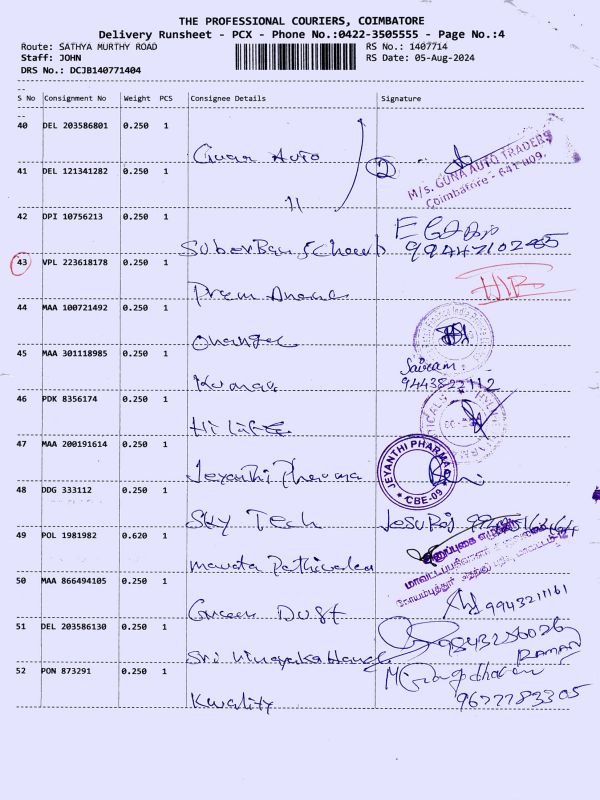 THE PROFESSIONAL COURIERS, COIMBATORE
Delivery Runsheet - PCX - Phone No.:0422-3505555 - Page No.:4
Route: SATHYA MURTHY ROAD RS No.: 1407714
Staff: JOHN RS Date: 05-Aug-2024
DRS No.: DCJB140771404
--
S No Consignment No Weight PCS Consignee Details Signature
--
40 DEL 203586801 0.250 1
Guar Auto
M/s. GUNA AUTO TRADERS
Coimbatore - 641 009.
41 DEL 121341282 0.250 1
11
42 DPI 10756213 0.250 1
43 VPL 223618178 0.250 1
Prem
44 MAA 100721492 0.250 1
45 MAA 301118985 0.250 1
Kumar
Sairam
9443822112
46 PDK 8356174 0.250 1
47 MAA 200191614 0.250 1
Jeyanthi Pharma
JEYANTHI PHARMA
* CBE-09 *
48 DDG 333112 0.250 1
SKY Tech
Jesu Raj
49 POL 1981982 0.620 1
50 MAA 866494105 0.250 1
Green Dust
9943211161
51 DEL 203586130 0.250 1
Sri
9843256026
RAMAN
52 PON 873291 0.250 1
Kwality
9677783305